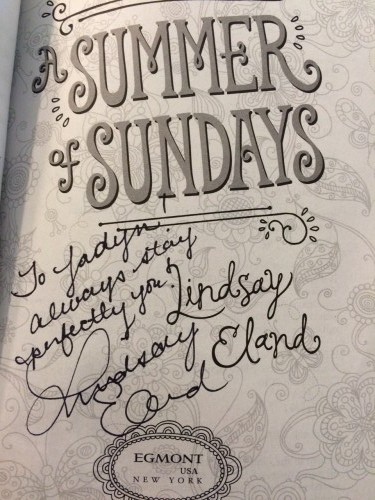 A SUMMER
of SUNDAYS
To Jadyn,
always stay
perfectly you!
Lindsay
Eland
Lindsay
Eland
EGMONT
USA
NEW YORK